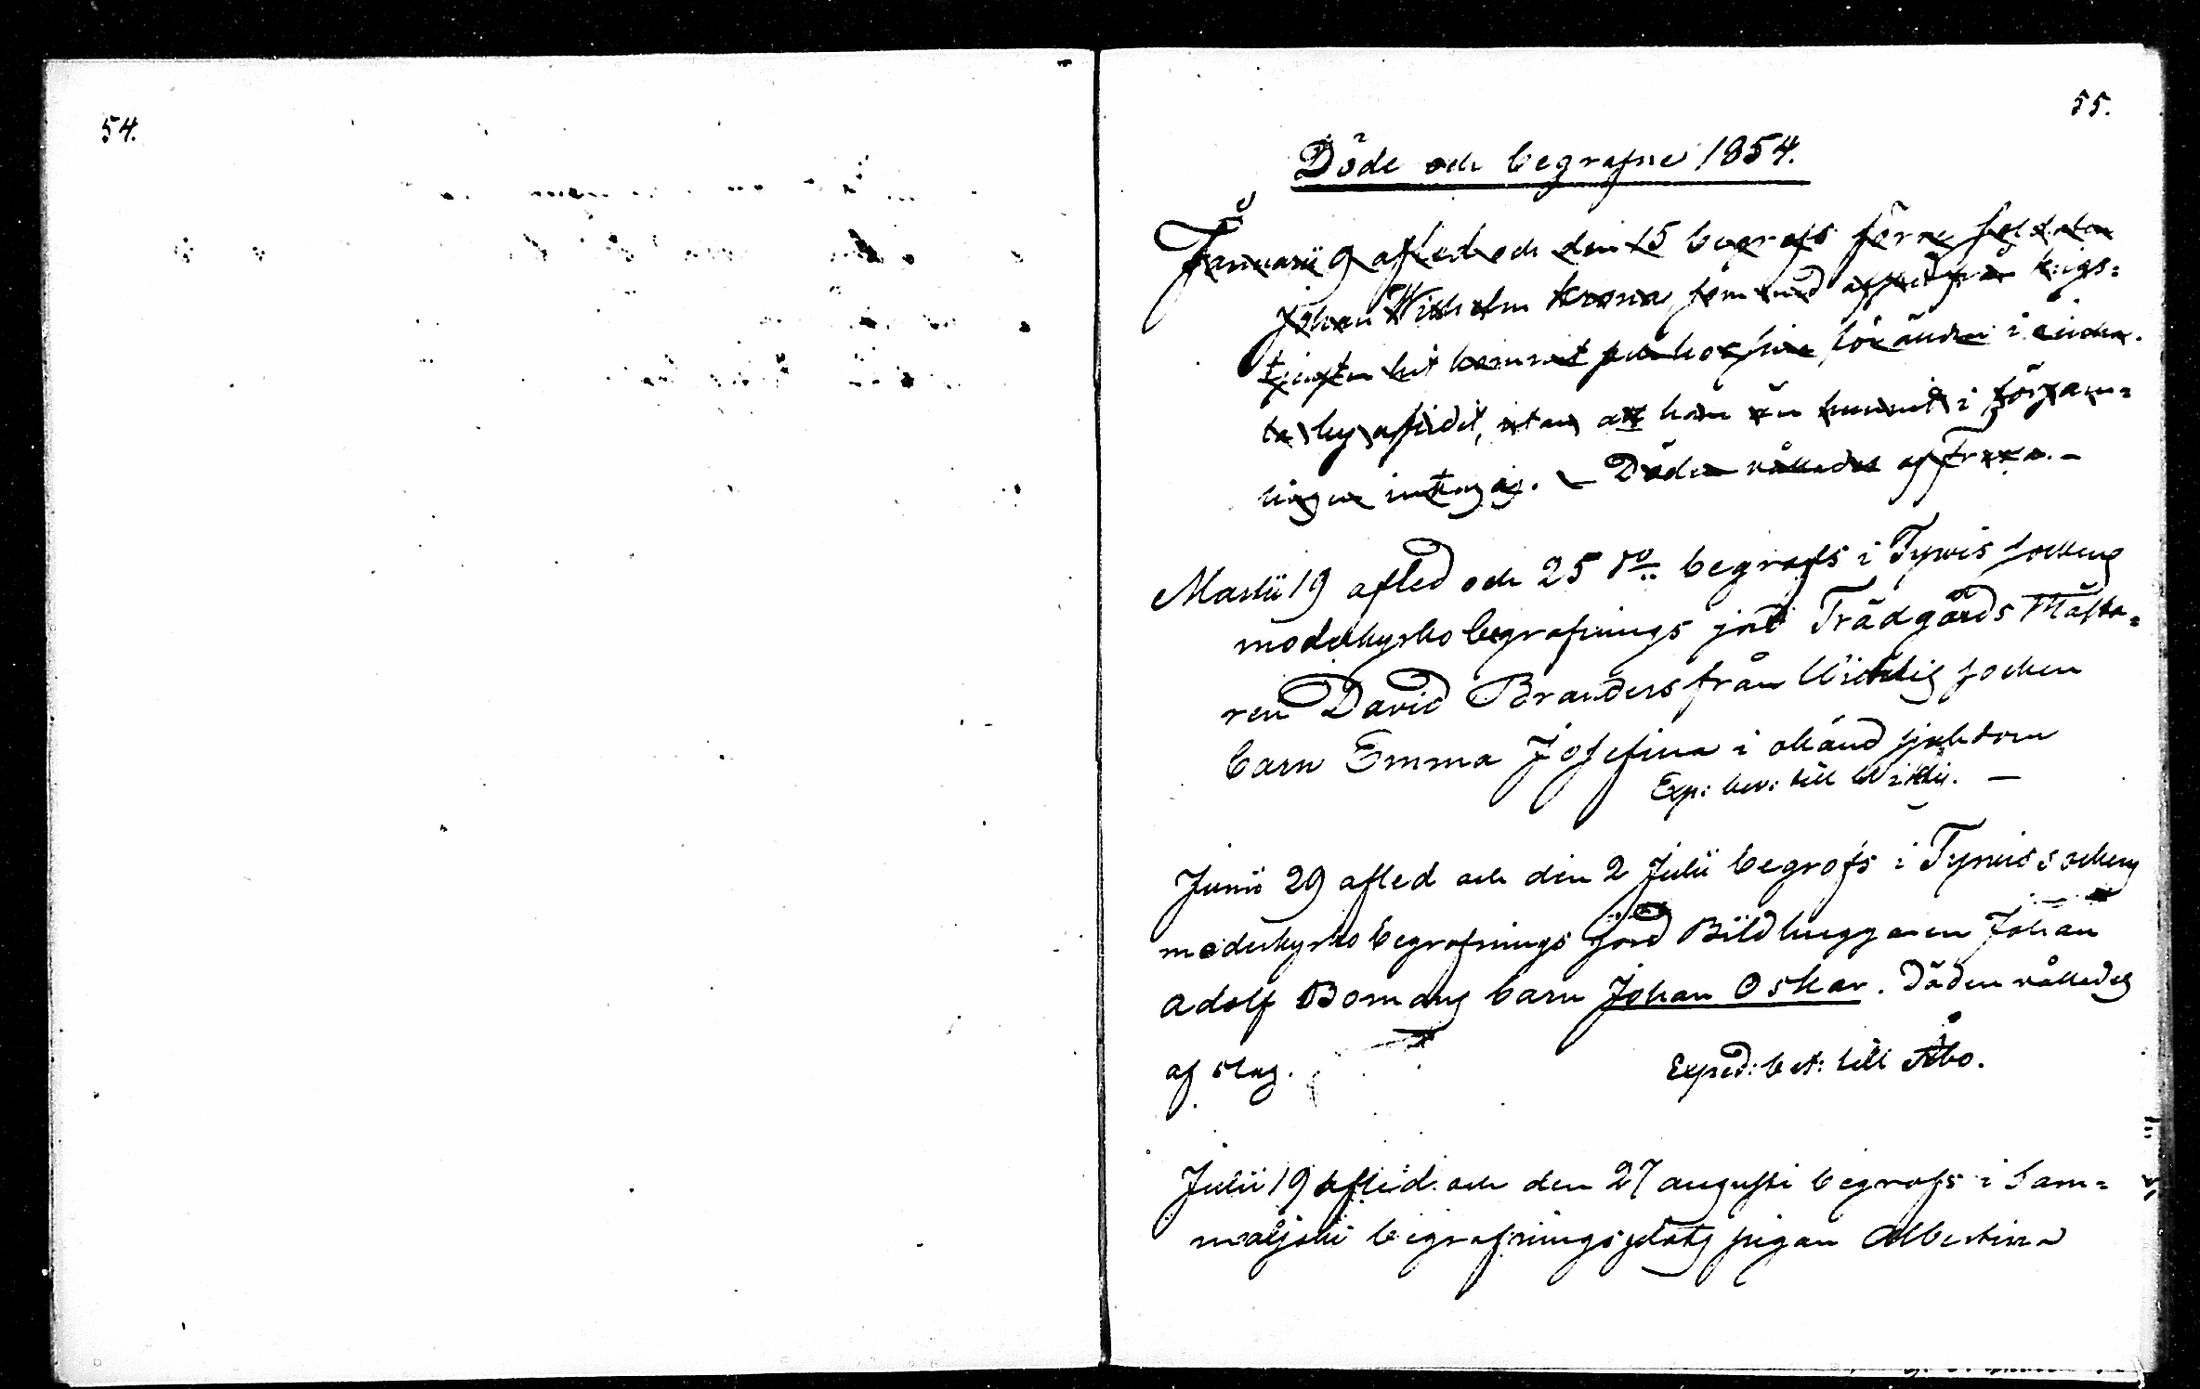 54.
55.
Döde och begrafne 1854.
Januarii 9 afled och den 15 begrofs förre soldaten
Johan Wilhelm Krona, som med afsked från krigs=
tjensten hit kommit och hos sine föräldrar i
by aflidit, utan att han än hunnit i församm=
lingen intagas. – Döden vållades af Frosse. –
Martii 19 afled och 25 do begrofs i Tyrvis sockens
moderkyrko begrafnings jord Trädgårds Mästa=
ren David Branders från Wichtis socken
barn Emma Josefina i okänd sjukdom
Exp: bev: till Wichtis. –
Junii 29 afled och den 2 Julii begrofs i Tyrvis sockens
moderkyrko begrafnings jord Bildhuggaren Johan
Adolf Bomans barn Johan Oskar. Döden vållades
af slag.
Exped: bet: till Åbo.
Julii 19 afled och den 27 augusti begrofs i Sam=
maljoki begrafningsplats pigan Albertina